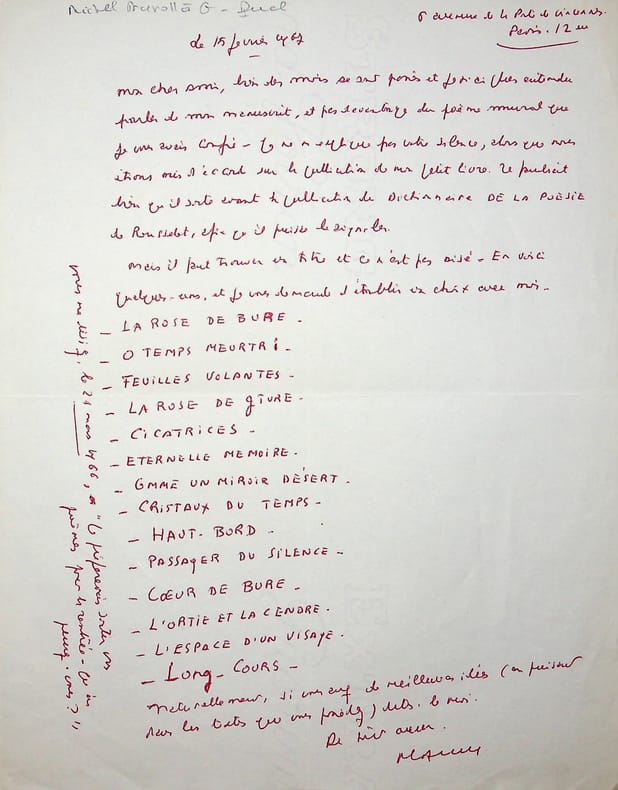 Michel
6 avenue de la Pte de Vincennes.
Paris. 12 em
Le 15 février 1967
mon cher ami, bien des mois se sont passés et je n'ai plus entendu
parler de mon manuscrit, et pas davantage du poème mural que
je vous avais confié - Je ne m'explique pas votre silence, alors que nous
étions mis d'accord sur la publication de mon petit livre. Il faudrait
bien qu'il sorte avant la publication du Dictionnaire DE LA POÉSIE
de Rousselot, afin qu'il puisse le signaler.
Mais il faut trouver un titre et ce n'est pas aisé - En voici
quelques-uns, et je vous demande d'établir un choix avec moi -
- LA ROSE DE BURE -
- O TEMPS MEURTRI -
- FEUILLES VOLANTES -
- LA ROSE DE GIVRE -
- CICATRICES -
- ETERNELLE MEMOIRE -
- COMME UN MIROIR DÉSERT -
- CRISTAUX DU TEMPS -
- HAUT-BORD -
- PASSAGER DU SILENCE -
- CŒUR DE BURE -
- L'ORTIE ET LA CENDRE -
- L'ESPACE D'UN VISAGE -
- Long-COURS -
Naturellement, si vous avez de meilleures idées (en puisant
dans les textes que vous possédez) dites-le moi.
vous me disiez, le 21 mars 1966, "Je préférerais sortir vos
poèmes pour la rentrée - Qu'en
pensez-vous ?"